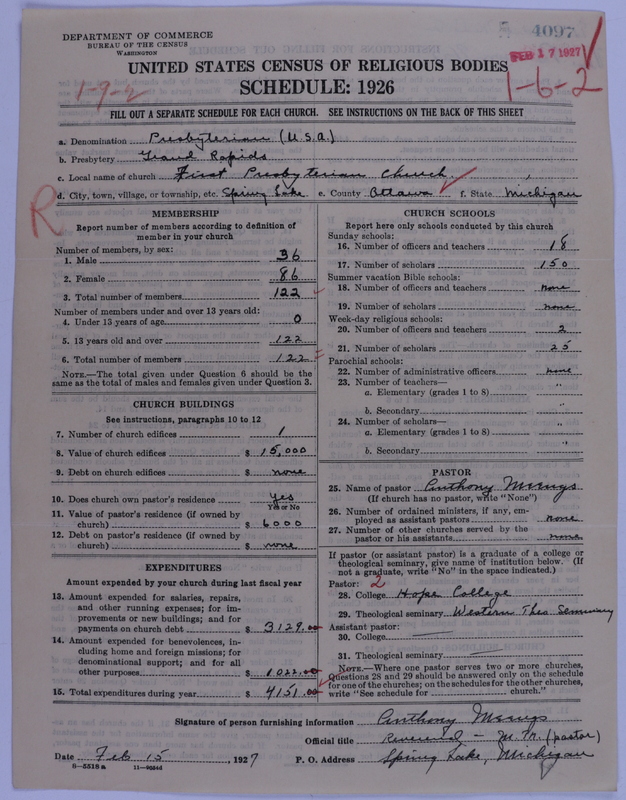 4097
DEPARTMENT OF COMMERCE
BUREAU OF THE CENSUS
WASHINGTON
FEB 17 1927
UNITED STATES CENSUS OF RELIGIOUS BODIES
SCHEDULE: 1926
1-9-2
1-6-2
FILL OUT A SEPARATE SCHEDULE FOR EACH CHURCH. SEE INSTRUCTIONS ON THE BACK OF THIS SHEET
a. Denomination Presbyterian (U.S.A.)
b. Presbytery Grand Rapids
c. Local name of church First Presbyterian Church
d. City, town, village, or township, etc. Spring Lake e. County Ottawa f. State Michigan
R
MEMBERSHIP
Report number of members according to definition of
member in your church
Number of members, by sex:
1. Male 36
2. Female 86
3. Total number of members 122
Number of members under and over 13 years old:
4. Under 13 years of age 0
5. 13 years old and over 122
6. Total number of members 122
NOTE.—The total given under Question 6 should be the
same as the total of males and females given under Question 3.
CHURCH BUILDINGS
See instructions, paragraphs 10 to 12
7. Number of church edifices 1
8. Value of church edifices $ 15,000
9. Debt on church edifices $ none
10. Does church own pastor's residence yes
Yes or No
11. Value of pastor's residence (if owned by
church) $ 6000
12. Debt on pastor's residence (if owned by
church) $ none
EXPENDITURES
Amount expended by your church during last fiscal year
13. Amount expended for salaries, repairs,
and other running expenses; for im-
provements or new buildings; and for
payments on church debt $ 3129.00
14. Amount expended for benevolences, in-
cluding home and foreign missions; for
denominational support; and for all
other purposes $ 1022.00
15. Total expenditures during year $ 4151.00
CHURCH SCHOOLS
Report here only schools conducted by this church
Sunday schools:
16. Number of officers and teachers 18
17. Number of scholars 150
Summer vacation Bible schools:
18. Number of officers and teachers none
19. Number of scholars none
Week-day religious schools:
20. Number of officers and teachers 2
21. Number of scholars 25
Parochial schools:
22. Number of administrative officers none
23. Number of teachers—
a. Elementary (grades 1 to 8) "
b. Secondary "
24. Number of scholars—
a. Elementary (grades 1 to 8) "
b. Secondary "
PASTOR
25. Name of pastor Anthony
(If church has no pastor, write "None")
26. Number of ordained ministers, if any, em-
ployed as assistant pastors none
27. Number of other churches served by the
pastor or his assistants none
If pastor (or assistant pastor) is a graduate of a college or
theological seminary, give name of institution below. (If
not a graduate, write "No" in the space indicated.)
Pastor: 2
28. College Hope College
29. Theological seminary Western Theo. Seminary
Assistant pastor:
30. College
31. Theological seminary
NOTE.—Where one pastor serves two or more churches,
Questions 28 and 29 should be answered only on the schedule
for one of the churches; on the schedules for the other churches,
write "See schedule for church."
Signature of person furnishing information Anthony
Official title Reverend (pastor)
Date Feb 15, 1927 P. O. Address Spring Lake, Michigan
8-5518 a 11-9594d